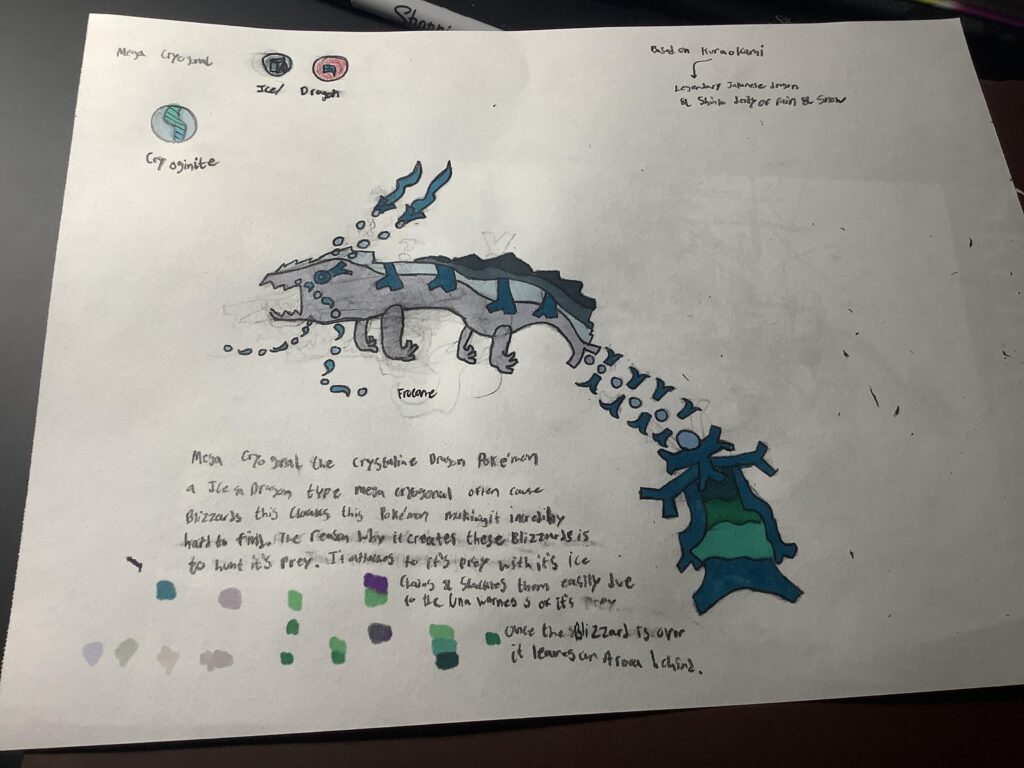 Sharpi
Mega Cryogonal
Ice/ Dragon
Based on Kuraokami
Legendary Japanese dragon
& Shinto deity of rain & snow
Cryoginite
Mega Cryogonal the crystaline Dragon Pokémon
a Ice & Dragon type mega cryogonal often cause
Blizzards this this Pokémon making it incredibly
hard to find. The reason why it creates these Blizzards is
to hunt it's prey. It to it's prey with it's ice
& them easily due
to the of it's prey
once the Blizzard is over
it leaves an behind.